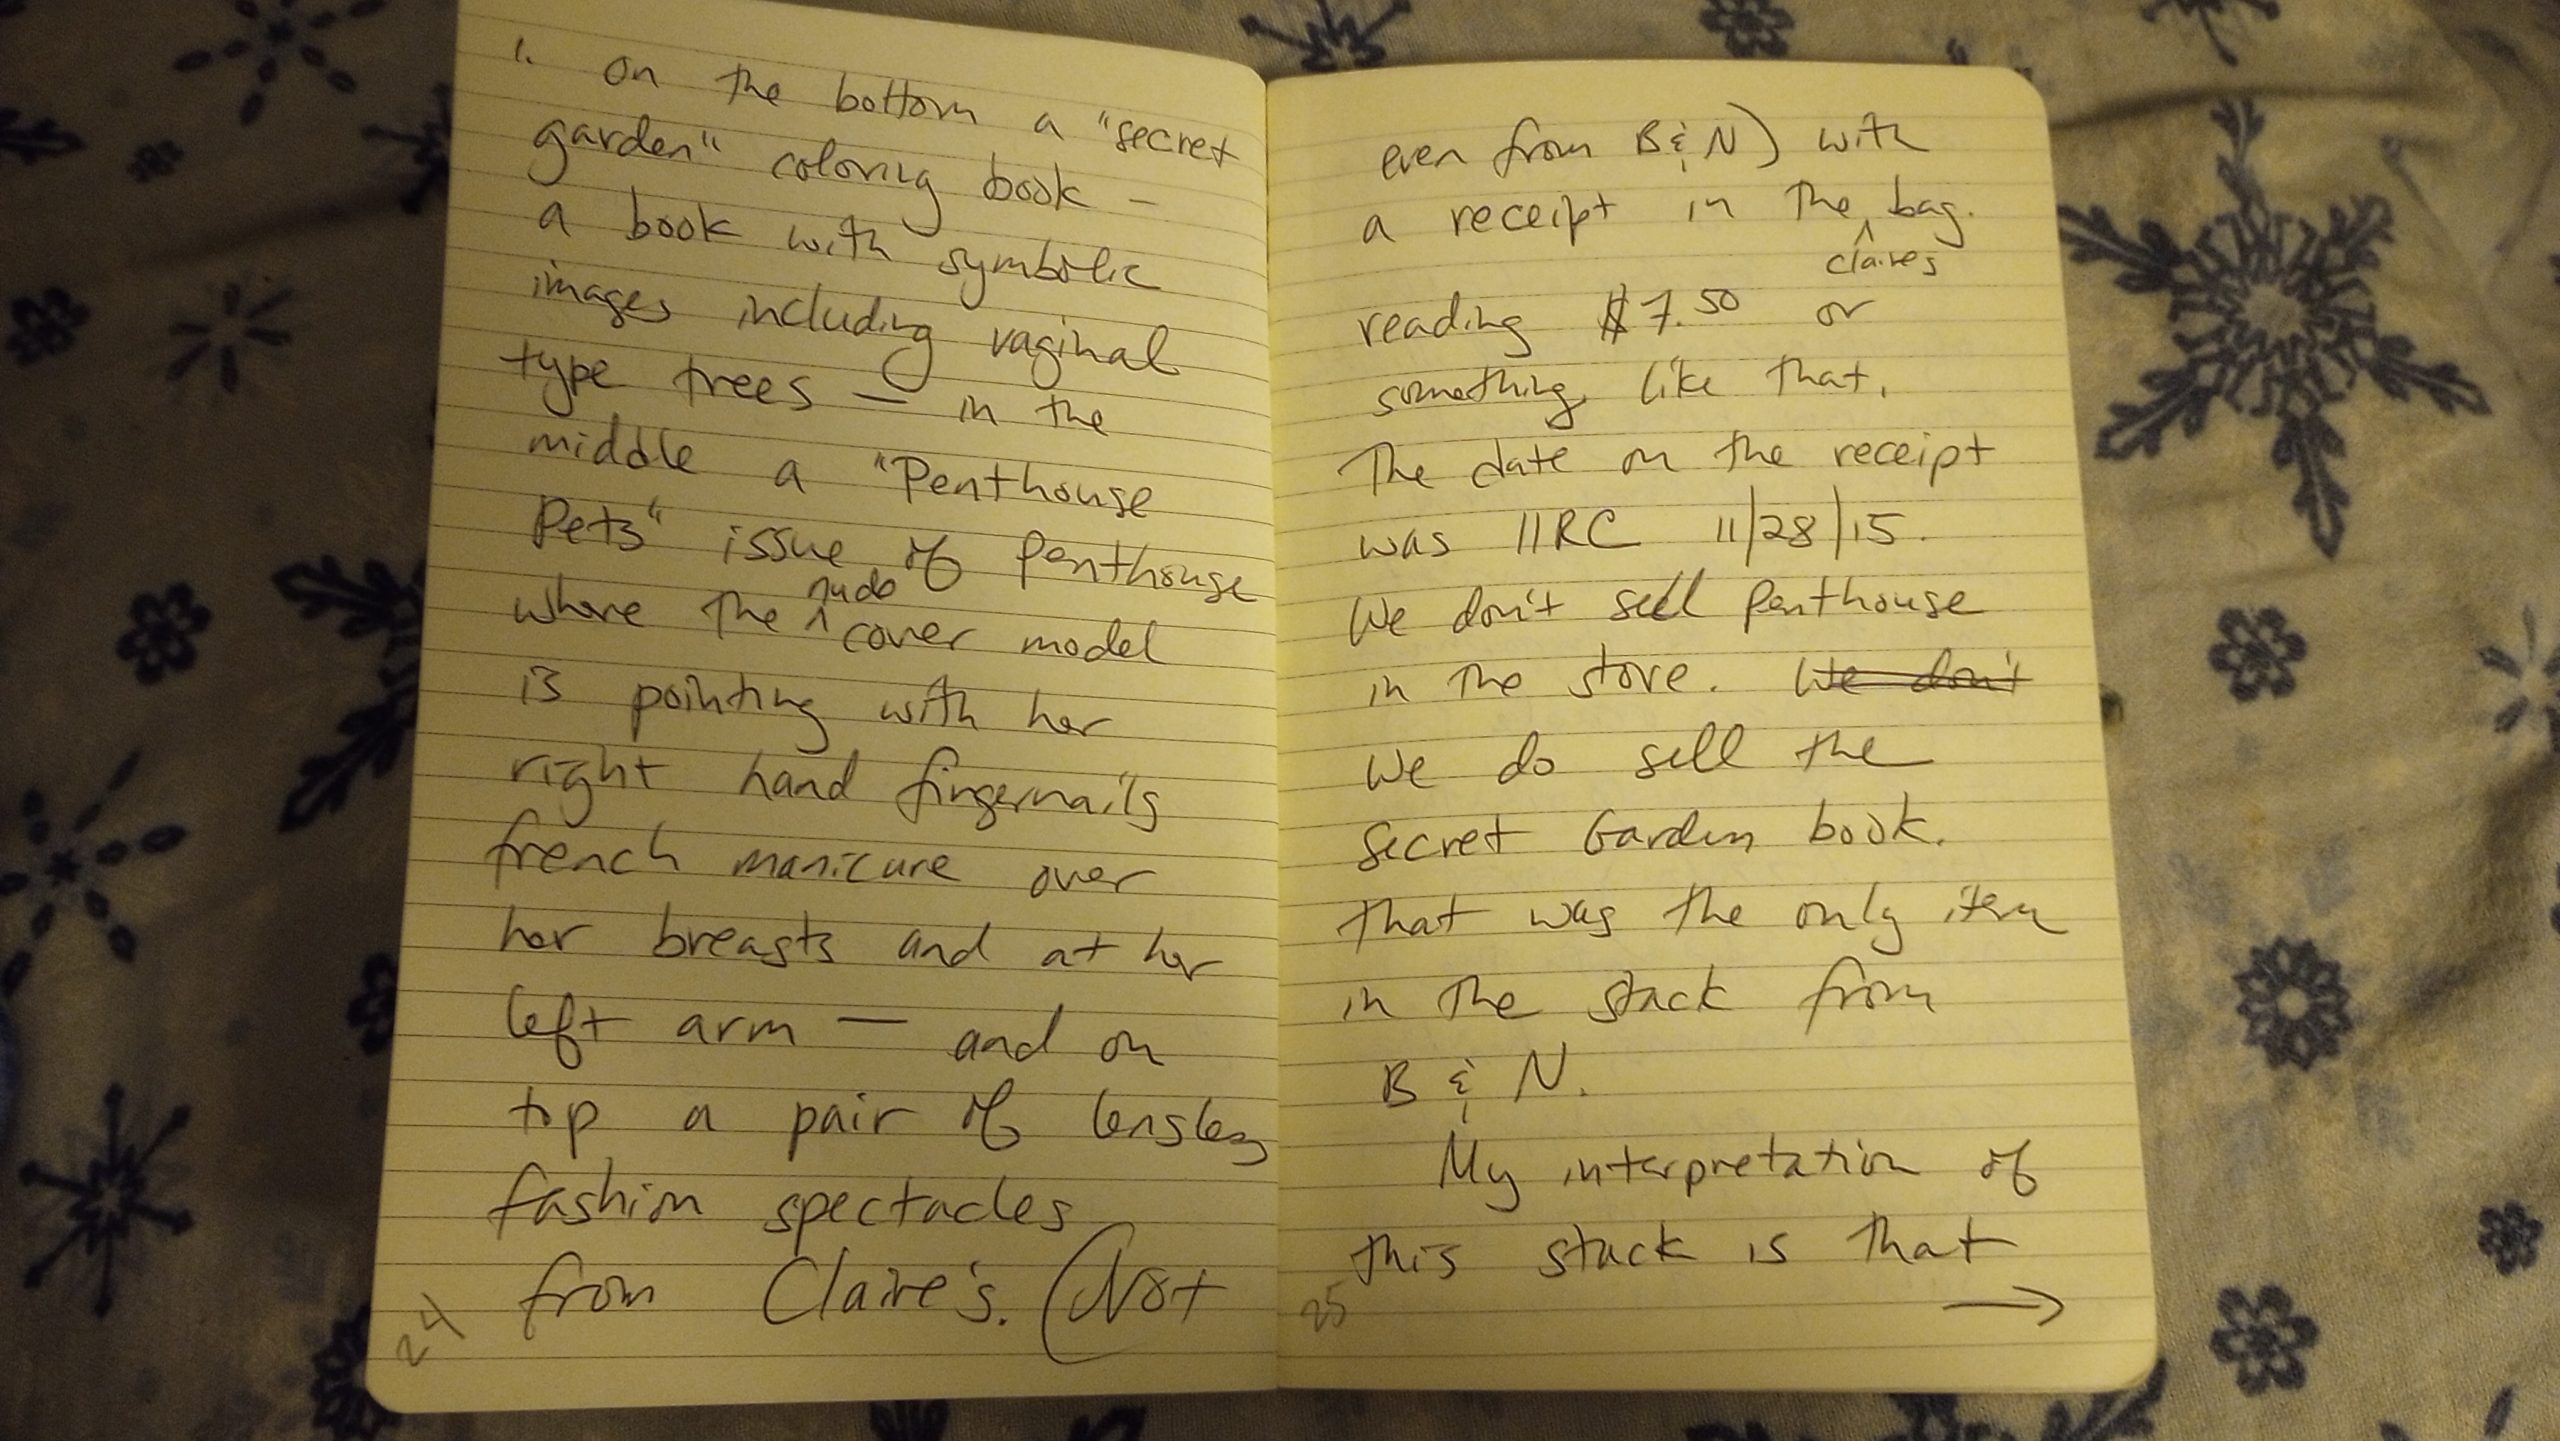 ". on the bottom a "secret
garden" coloring book –
a book with symbolic
images including vaginal
type trees – in the
middle a "Penthouse
Pets" issue of Penthouse
where the ^ nude cover model
is pointing with her
right hand fingernails
french manicure over
her breasts and at her
left arm — and on
top a pair of lensless
fashion spectacles
from Claire's. (Not
24
even from B & N) with
a receipt in the ^ bag.
claires
reading $7.50 or
something like that.
The date on the receipt
was IIRC 11/28/15.
We don't sell Penthouse
in the store. We don't
We do sell the
Secret Garden book.
That was the only item
in the stack from
B & N.
My interpretation of
this stack is that
→
25